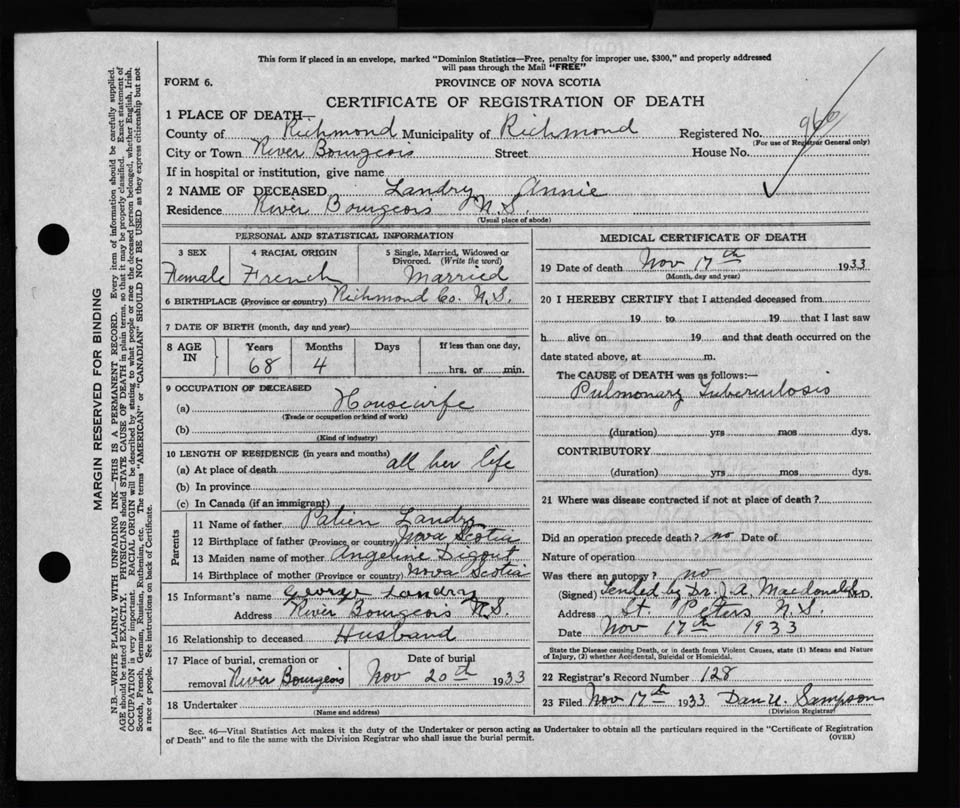 This form if placed in an envelope, marked "Dominion Statistics—Free, penalty for improper use, $300," and properly addressed
will pass through the Mail "FREE"
FORM 6.
PROVINCE OF NOVA SCOTIA
CERTIFICATE OF REGISTRATION OF DEATH
1 PLACE OF DEATH—
County of Richmond Municipality of Richmond Registered No.
(For use of Registrar General only)
City or Town River Bourgeois Street House No.
If in hospital or institution, give name
2 NAME OF DECEASED Landry Annie
Residence River Bourgeois N.S.
(Usual place of abode)
PERSONAL AND STATISTICAL INFORMATION
3 SEX
Female
4 RACIAL ORIGIN
French
5 Single, Married, Widowed or
Divorced. (Write the word)
Married
6 BIRTHPLACE (Province or country) Richmond Co. N.S.
7 DATE OF BIRTH (month, day and year)
8 AGE
IN
Years
68
Months
4
Days
If less than one day,
hrs. or min.
9 OCCUPATION OF DECEASED
(a) Housewife
(Trade or occupation or kind of work)
(b)
(Kind of industry)
10 LENGTH OF RESIDENCE (in years and months)
(a) At place of death all her life
(b) In province
(c) In Canada (if an immigrant)
Parents
11 Name of father Landry
12 Birthplace of father (Province or country) Nova Scotia
13 Maiden name of mother Angeline Digout
14 Birthplace of mother (Province or country) Nova Scotia
15 Informant's name George Landry
Address River Bourgeois N.S.
16 Relationship to deceased Husband
17 Place of burial, cremation or
removal River Bourgeois
Date of burial
Nov 20th 1933
18 Undertaker
(Name and address)
MEDICAL CERTIFICATE OF DEATH
19 Date of death Nov 17th 1933
(Month, day and year)
20 I HEREBY CERTIFY that I attended deceased from
19 to 19 that I last saw
h alive on 19 and that death occurred on the
date stated above, at m.
The CAUSE of DEATH was as follows:—
Pulmonary Tuberculosis
(duration) yrs mos dys.
CONTRIBUTORY
(duration) yrs mos dys.
21 Where was disease contracted if not at place of death?
Did an operation precede death? no Date of
Nature of operation
Was there an autopsy? no
(Signed) Tended by Dr. J.A. Macdonald M.D.
Address St. Peters N.S.
Date Nov 17th 1933
State the Disease causing Death, or in death from Violent Causes, state (1) Means and Nature
of Injury, (2) whether Accidental, Suicidal or Homicidal.
22 Registrar's Record Number 128
23 Filed Nov 17th 1933 Dan U. Sampson
(Division Registrar)
Sec. 46—Vital Statistics Act makes it the duty of the Undertaker or person acting as Undertaker to obtain all the particulars required in the "Certificate of Registration
of Death" and to file the same with the Division Registrar who shall issue the burial permit.
(OVER)
MARGIN RESERVED FOR BINDING
N.B.—WRITE PLAINLY WITH UNFADING INK—THIS IS A PERMANENT RECORD. Every item of information should be carefully supplied.
AGE should be stated EXACTLY. PHYSICIANS should STATE CAUSE OF DEATH in plain terms, so that it may be properly classified. Exact statement of
OCCUPATION is very important. RACIAL ORIGIN will be described by stating to what people or race the deceased person belonged, whether English, Irish,
Scotch, French, German, Russian, Ruthenian, etc. The terms "AMERICAN" or "CANADIAN" SHOULD NOT BE USED as they express citizenship but not
a race or people. See instructions on back of Certificate.